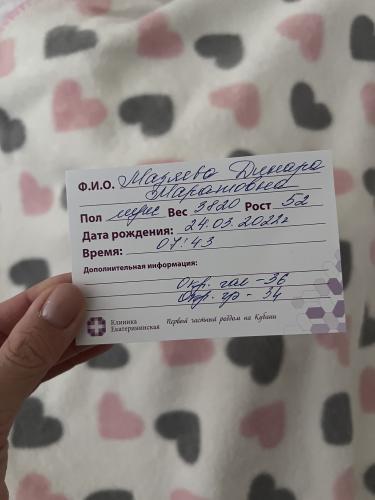 Ф.И.О. Мазяева Динара
Маратовна
Пол муж Вес 3820 Рост 52
Дата рождения: 24.03.2022г
Время: 07:43
Дополнительная информация:
Окр. гол - 36
Окр. гр - 34
Клиника
Екатерининская
Первый частный роддом на Кубани